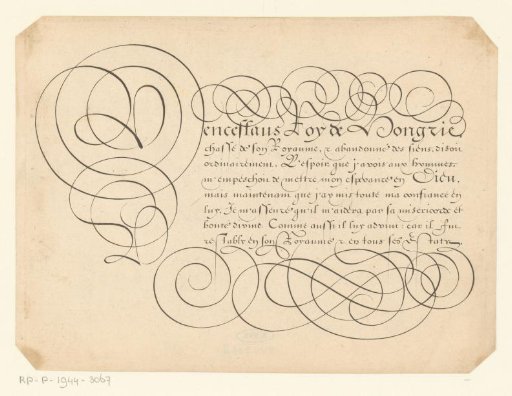 Venceslaus Roy de Hongrie,
chassé de son Royaume, & abandonné des siens, disoit
ordinairement, L'espoir que j'avois aux hommes,
m'empeschoit de mettre mon esperance en Dieu,
mais maintenant que j'ay mis toute ma confiance en
luy, Je m'asseure qu'il m'aidera par sa misericorde et
bonté divine. Comme aussi il luy advint: car il fut
restably en son Royaume & en tous ses Estatz.
RP-P-1944-3067